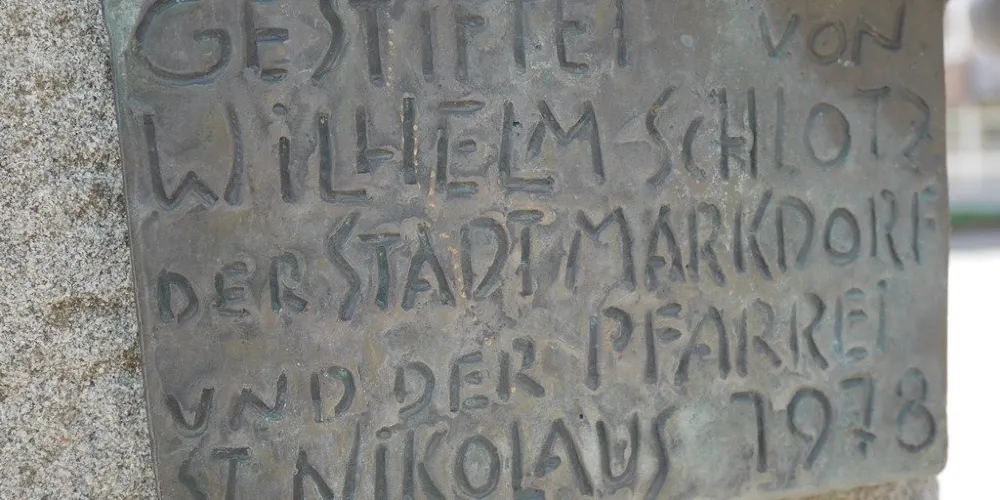 GESTIFTET VON
WILHELM SCHLOTZ
DER STADT MARKDORF
UND DER PFARREI
ST. NIKOLAUS 1978